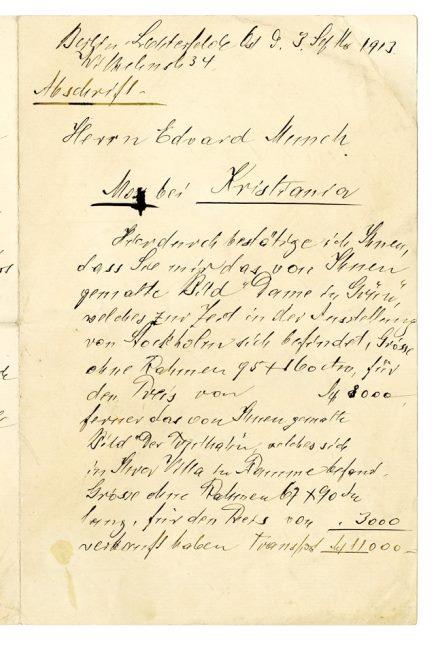 Berlin-Lichterfelde Ost d. 3. Sept. 1913
Wilhelmstr 34.
Abschrift.
Herrn Edvard Munch
Moss bei Kristiania
Hierdurch bestätige ich Ihnen,
dass Sie mir das von Ihnen
gemalte Bild "Dame in Grün",
welches zur Zeit in der Ausstellung
von Stockholm sich befindet, Grösse
ohne Rahmen 95 x 160 ctm, für
den Preis von M 8000
ferner das von Ihnen gemalte
Bild "Der" welches sich
in Ihrer Villa in Ramme befand.
Grösse ohne Rahmen 67 x 90 ctm
lang, für den Preis von . 3000
verkauft haben Transport M 11000-